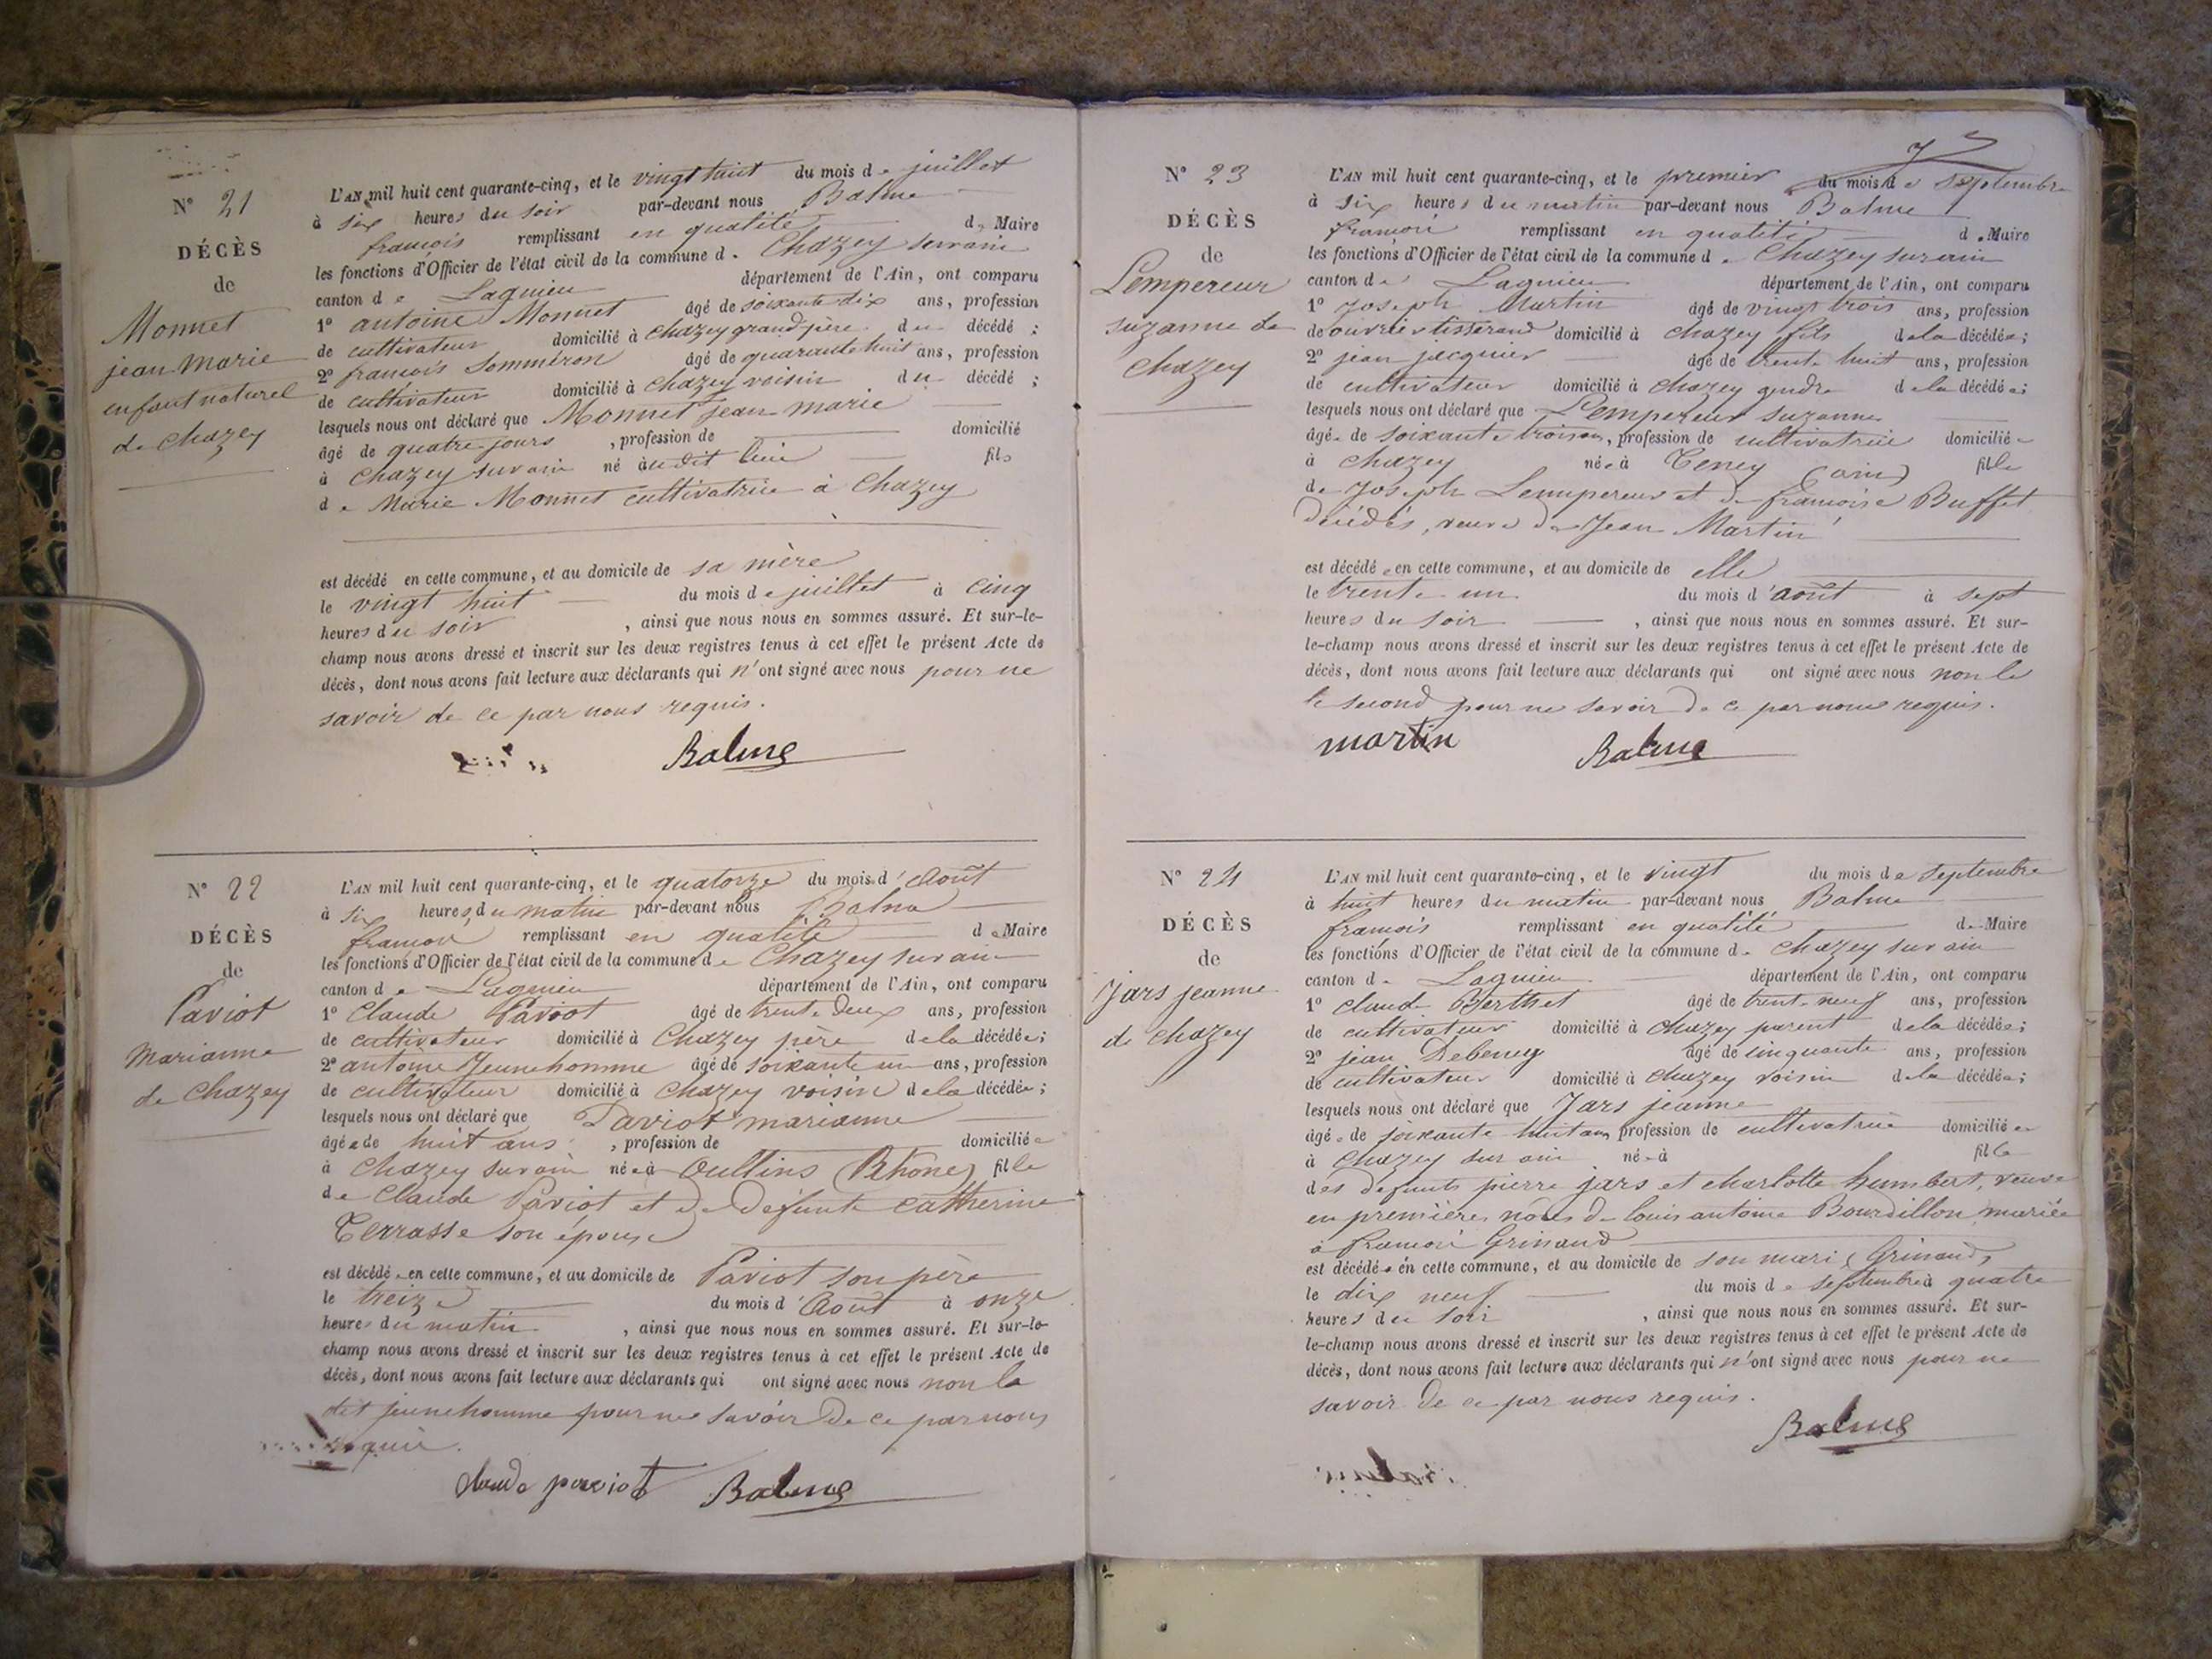 N° 21
DÉCÈS
de
Monnet
jean marie
enfant naturel
de chazey
L'AN mil huit cent quarante-cinq, et le vingt huit du mois de juillet
à six heures du soir par-devant nous Balme
françois remplissant en qualité de Maire
les fonctions d'Officier de l'état civil de la commune de Chazey sur ain
canton de Lagnieu département de l'Ain, ont comparu
1° antoine Monnet âgé de soixante dix ans, profession
de cultivateur domicilié à chazey grand père du décédé ;
2° françois Sommeron âgé de quarante huit ans, profession
de cultivateur domicilié à chazey voisin du décédé ;
lesquels nous ont déclaré que Monnet jean marie
âgé de quatre jours , profession de domicilié
à chazey sur ain né audit lieu fils
de Marie Monnet cultivatrice à Chazey
est décédé en cette commune, et au domicile de sa mère
le vingt huit du mois de juillet à cinq
heures du soir , ainsi que nous nous en sommes assuré. Et sur-le-
champ nous avons dressé et inscrit sur les deux registres tenus à cet effet le présent Acte de
décès, dont nous avons fait lecture aux déclarants qui n'ont signé avec nous pour ne
savoir de ce par nous requis.
Balme
N° 22
DÉCÈS
de
Paviot
Marianne
de Chazey
L'AN mil huit cent quarante-cinq, et le quatorze du mois d'Août
à six heures du matin par-devant nous Balme
françois remplissant en qualité de Maire
les fonctions d'Officier de l'état civil de la commune de Chazey sur ain
canton de Lagnieu département de l'Ain, ont comparu
1° Claude Paviot âgé de trente deux ans, profession
de cultivateur domicilié à Chazey père de la décédée ;
2° antoine Jeunehomme âgé de soixante un ans, profession
de cultivateur domicilié à chazey voisin de la décédée ;
lesquels nous ont déclaré que Paviot marianne
âgée de huit ans , profession de domiciliée
à Chazey sur ain née à Oullins (Rhône) fille
de Claude Paviot et de defunte catherine
Terrasse son épouse
est décédée en cette commune, et au domicile de Paviot son père
le treize du mois d'Août à onze
heures du matin , ainsi que nous nous en sommes assuré. Et sur-le-
champ nous avons dressé et inscrit sur les deux registres tenus à cet effet le présent Acte de
décès, dont nous avons fait lecture aux déclarants qui ont signé avec nous non le
dit jeunehomme pour ne savoir de ce par nous
requis.
claude paviot Balme
N° 23
DÉCÈS
de
Lempereur
suzanne de
chazey
L'AN mil huit cent quarante-cinq, et le premier du mois de Septembre
à six heures du matin par-devant nous Balme
françois remplissant en qualité de Maire
les fonctions d'Officier de l'état civil de la commune de Chazey sur ain
canton de Lagnieu département de l'Ain, ont comparu
1° Joseph Martin âgé de vingt trois ans, profession
de ouvrier tisserand domicilié à chazey fils de la décédée ;
2° jean jacquier âgé de trente huit ans, profession
de cultivateur domicilié à chazey gendre de la décédée ;
lesquels nous ont déclaré que Lempereur suzanne
âgée de soixante trois ans, profession de cultivatrice domiciliée
à chazey née à Teney (ain) fille
de Joseph Lempereur et de françoise Buffet
décédés, veuve de Jean Martin
est décédée en cette commune, et au domicile de elle
le trente un du mois d'août à sept
heures du soir , ainsi que nous nous en sommes assuré. Et sur-
le-champ nous avons dressé et inscrit sur les deux registres tenus à cet effet le présent Acte de
décès, dont nous avons fait lecture aux déclarants qui ont signé avec nous non le
le second pour ne savoir de ce par nous requis.
martin Balme
N° 24
DÉCÈS
de
Jars jeanne
de chazey
L'AN mil huit cent quarante-cinq, et le vingt du mois de septembre
à huit heures du matin par-devant nous Balme
françois remplissant en qualité de Maire
les fonctions d'Officier de l'état civil de la commune de chazey sur ain
canton de Lagnieu département de l'Ain, ont comparu
1° claude Berthet âgé de trente neuf ans, profession
de cultivateur domicilié à chazey parent de la décédée ;
2° jean Debeney âgé de cinquante ans, profession
de cultivateur domicilié à chazey voisin de la décédée ;
lesquels nous ont déclaré que Jars jeanne
âgée de soixante huit ans profession de cultivatrice domiciliée
à chazey sur ain née à fille
des defunts pierre jars et charlotte humbert, veuve
en premières noces de louis antoine Bourdillon mariée
à françois Grinand
est décédée en cette commune, et au domicile de son mari (Grinand)
le dix neuf du mois de septembre à quatre
heures du soir , ainsi que nous nous en sommes assuré. Et sur-
le-champ nous avons dressé et inscrit sur les deux registres tenus à cet effet le présent Acte de
décès, dont nous avons fait lecture aux déclarants qui n'ont signé avec nous pour ne
savoir de ce par nous requis.
Balme